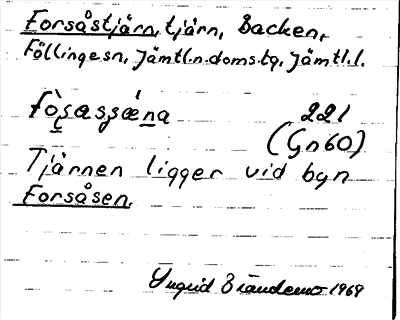 Forsåstjärn, tjärn, Backen,
Föllinge sn, Jämtl.n.doms.tg, Jämtl.l.
221
(Gn60)
Tjärnen ligger vid byn
Forsåsen.
Yngrid Brändemo 1969